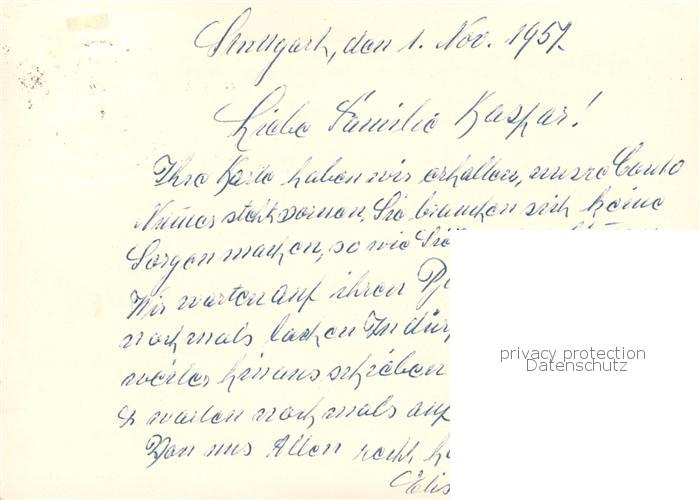 Stuttgart, den 1. Nov. 1957.
Liebe Familie Kaspar!
Ihre Karte haben wir erhalten, unsre Conto
Numer steht vornen, Sie brauchen sich keine
Sorgen machen, so wie
Wir warten auf ihren
nochmals lachen
weiter hinausschieben
warten nochmals auf
Von uns Allen recht
privacy protection
Datenschutz